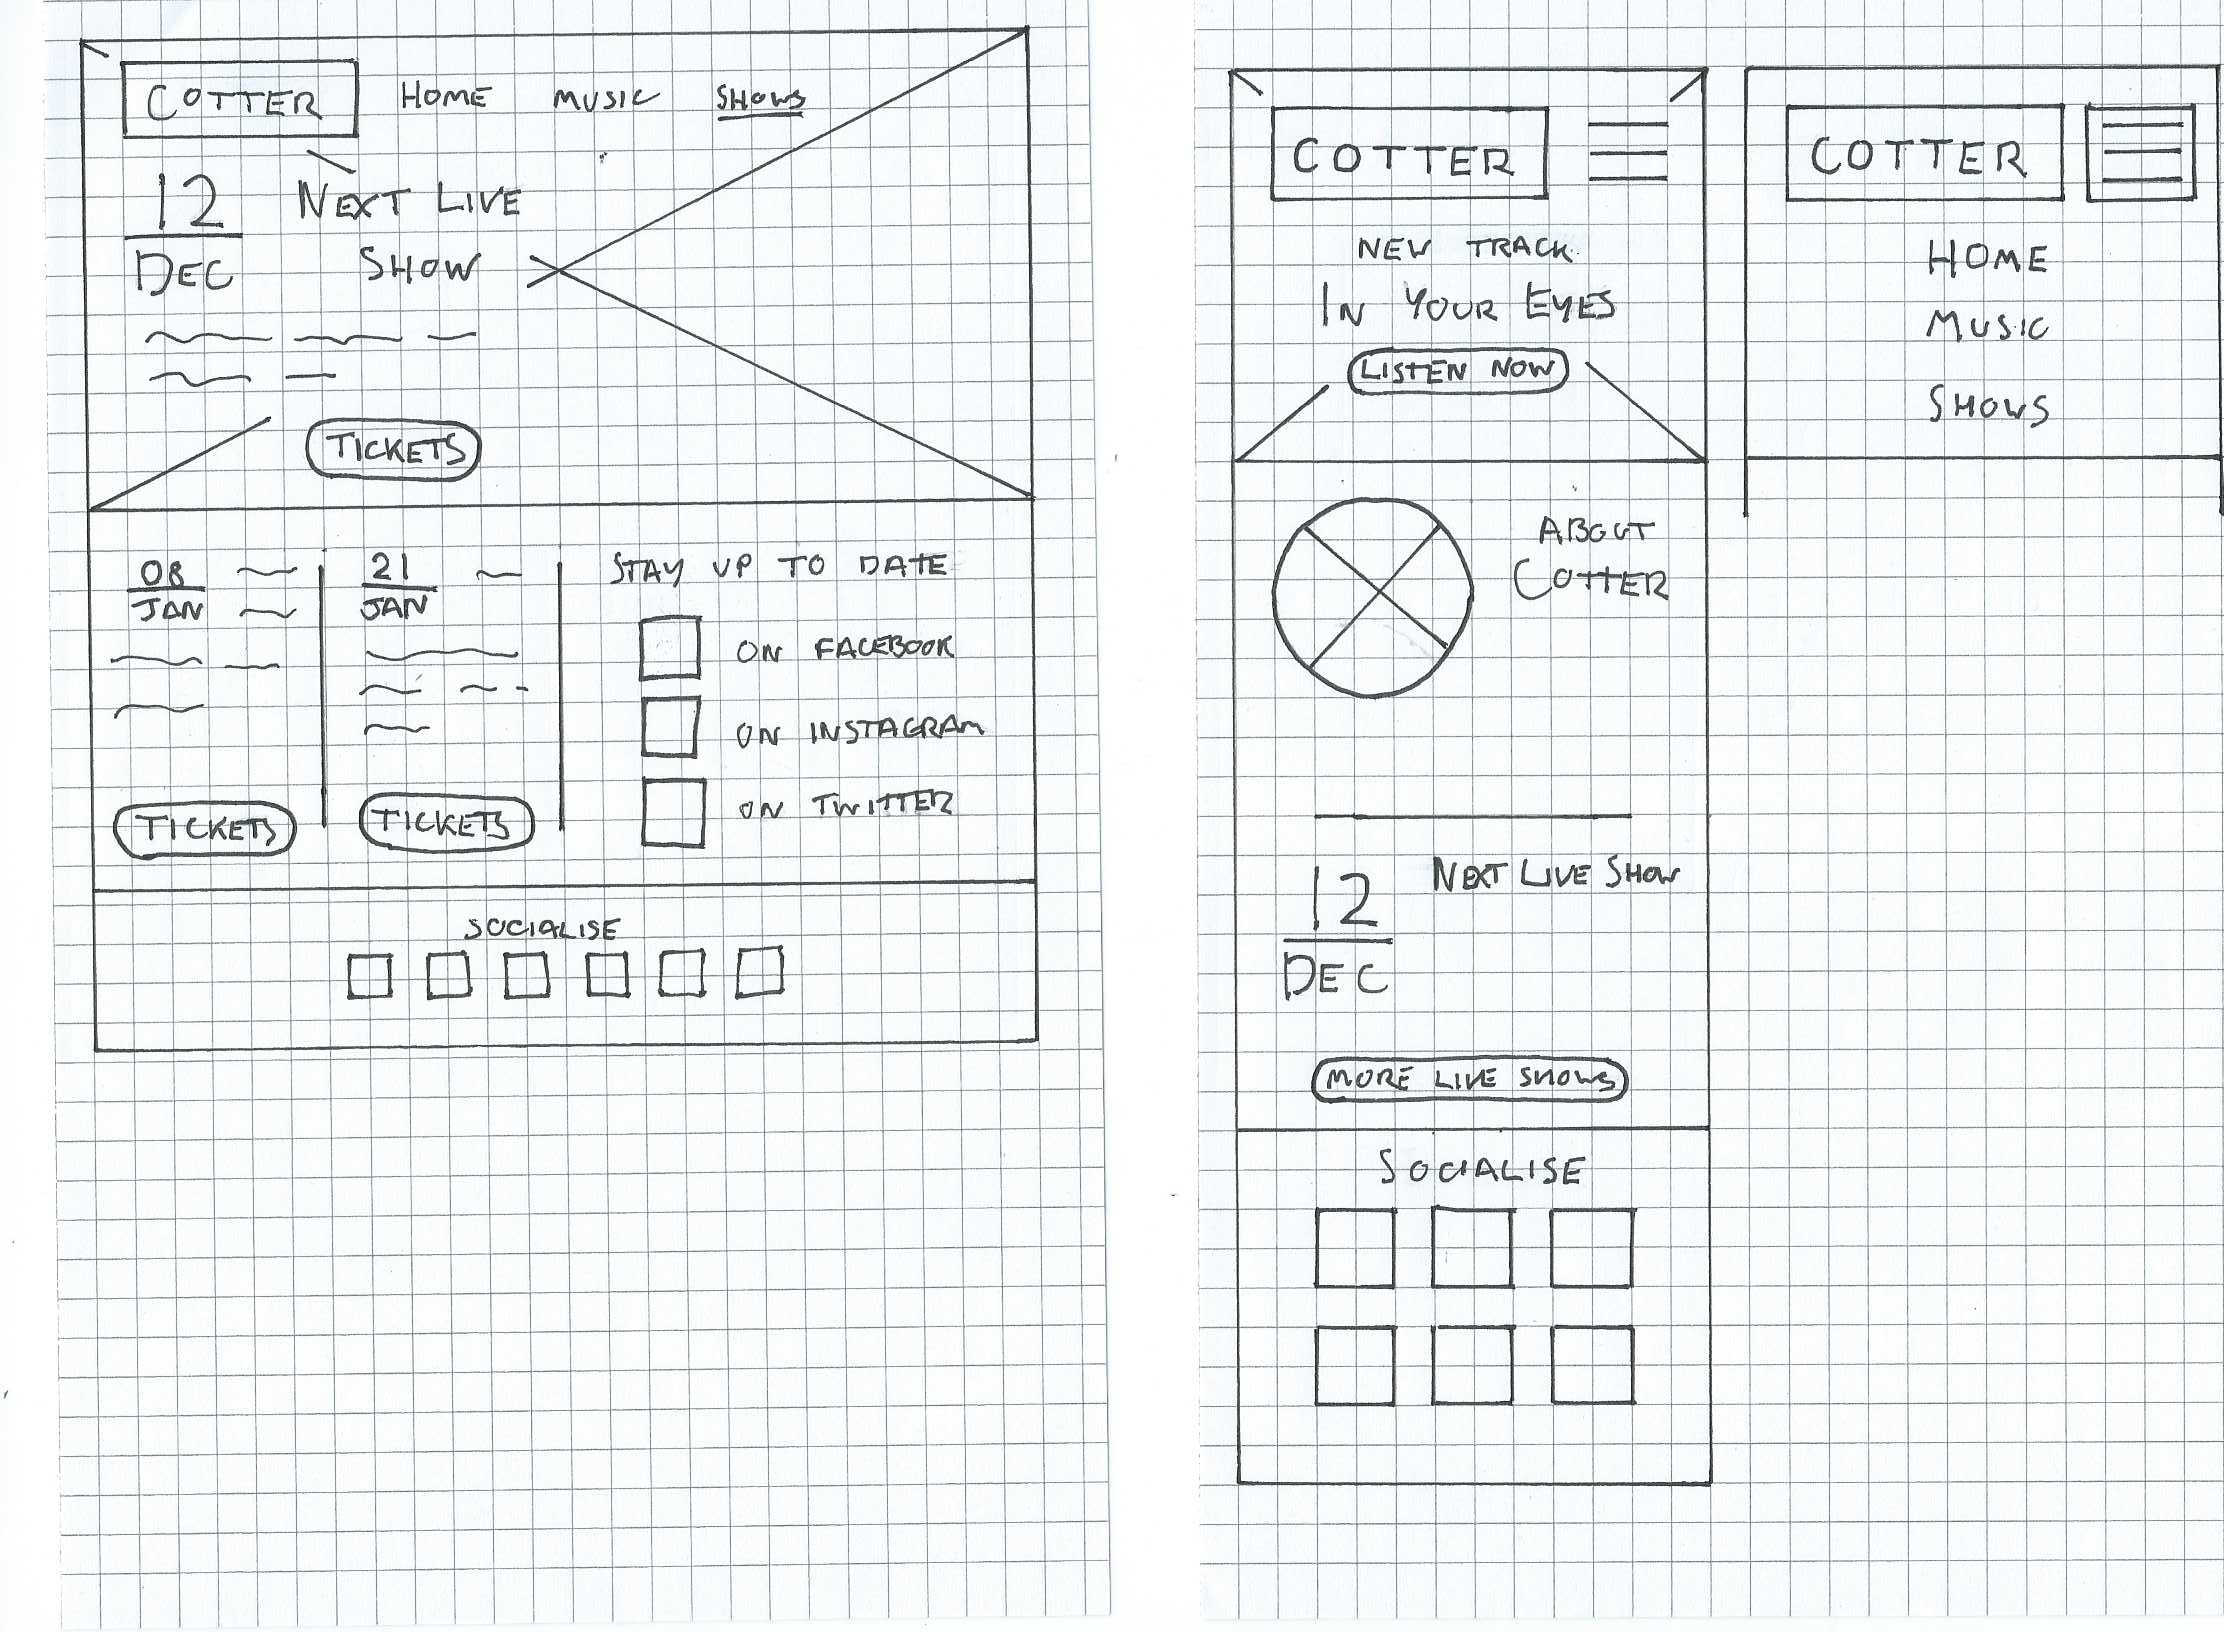 COTTER HOME MUSIC SHOWS
12
DEC
NEXT LIVE
SHOW
TICKETS
08
JAN
TICKETS
21
JAN
TICKETS
STAY UP TO DATE
ON FACEBOOK
ON INSTAGRAM
ON TWITTER
SOCIALISE
COTTER
NEW TRACK
IN YOUR EYES
LISTEN NOW
ABOUT
COTTER
12
DEC
NEXT LIVE SHOW
MORE LIVE SHOWS
SOCIALISE
COTTER
HOME
MUSIC
SHOWS